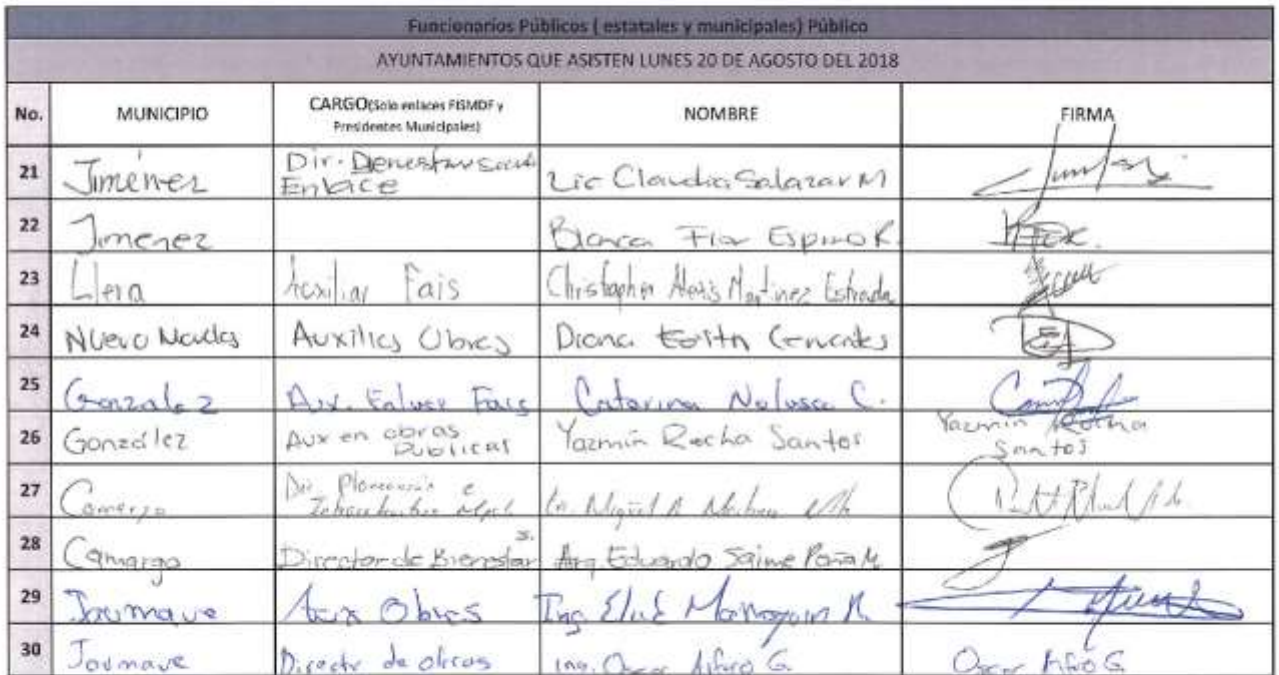 Funcionarios Públicos ( estatales y municipales) Público
AYUNTAMIENTOS QUE ASISTEN LUNES 20 DE AGOSTO DEL 2018
No. MUNICIPIO CARGO(Solo enlaces FISMDF y Presidentes Municipales) NOMBRE FIRMA
21 Jiménez Dir. Enlace Lic Claudia Salazar M
22 Jimenez Blanca Flor Espino R.
23 Llera Auxiliar Fais Christopher Alexis Martinez Estrada
24 Nuevo Auxiliar Obras Diana Cervantes
25 Gonzalez Aux. Fais Catarina C.
26 González Aux en obras Publicas Yazmín Rocha Santos Yazmin Rocha Santos
27 Camargo Dir. e
28 Camargo Director de Bienestar s. Arq. Eduardo M.
29 Jaumave Aux Obras Ing.
30 Jaumave Director de obras Ing. Oscar Alfaro G. Oscar Alfaro G